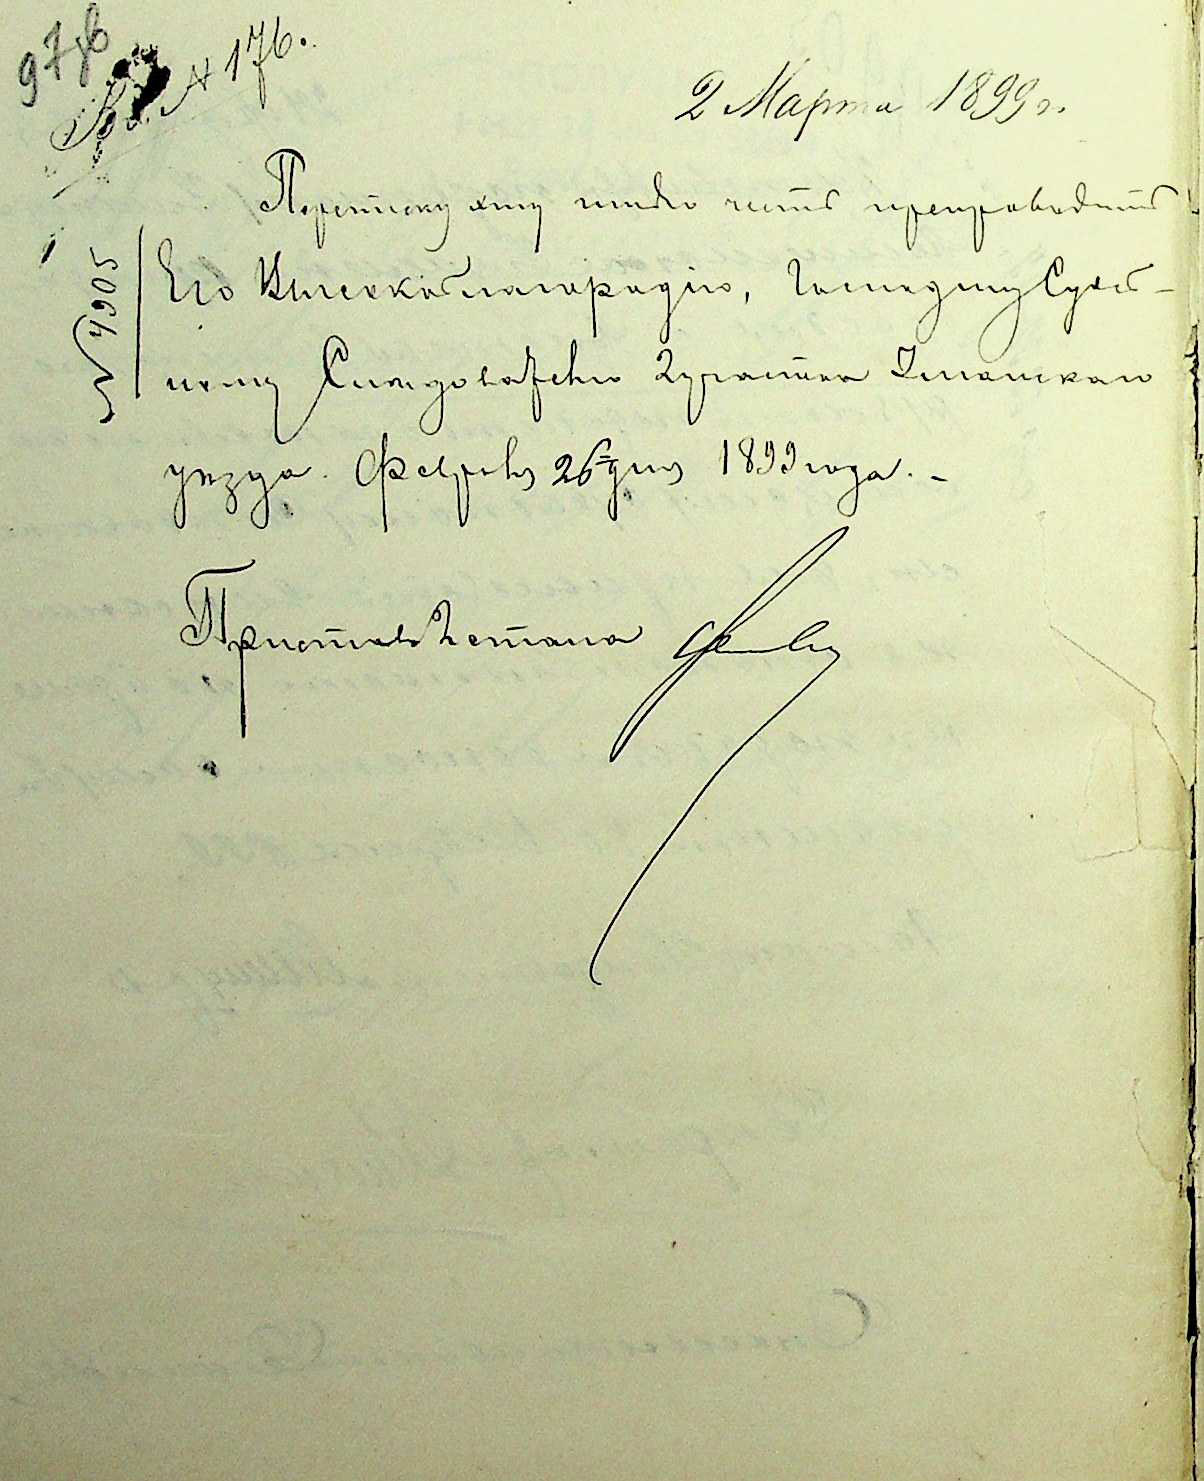 976
Вх. № 176.
2 Марта 1899 г.
Переписку эту имѣю честь препроводить
№ 4905
Его Высокоблагородію, Господину Судеб-
ному Слѣдователю 2 участка Уманскаго
уезда. Февраля 26 дня 1899 года. -
Приставъ 2 стана